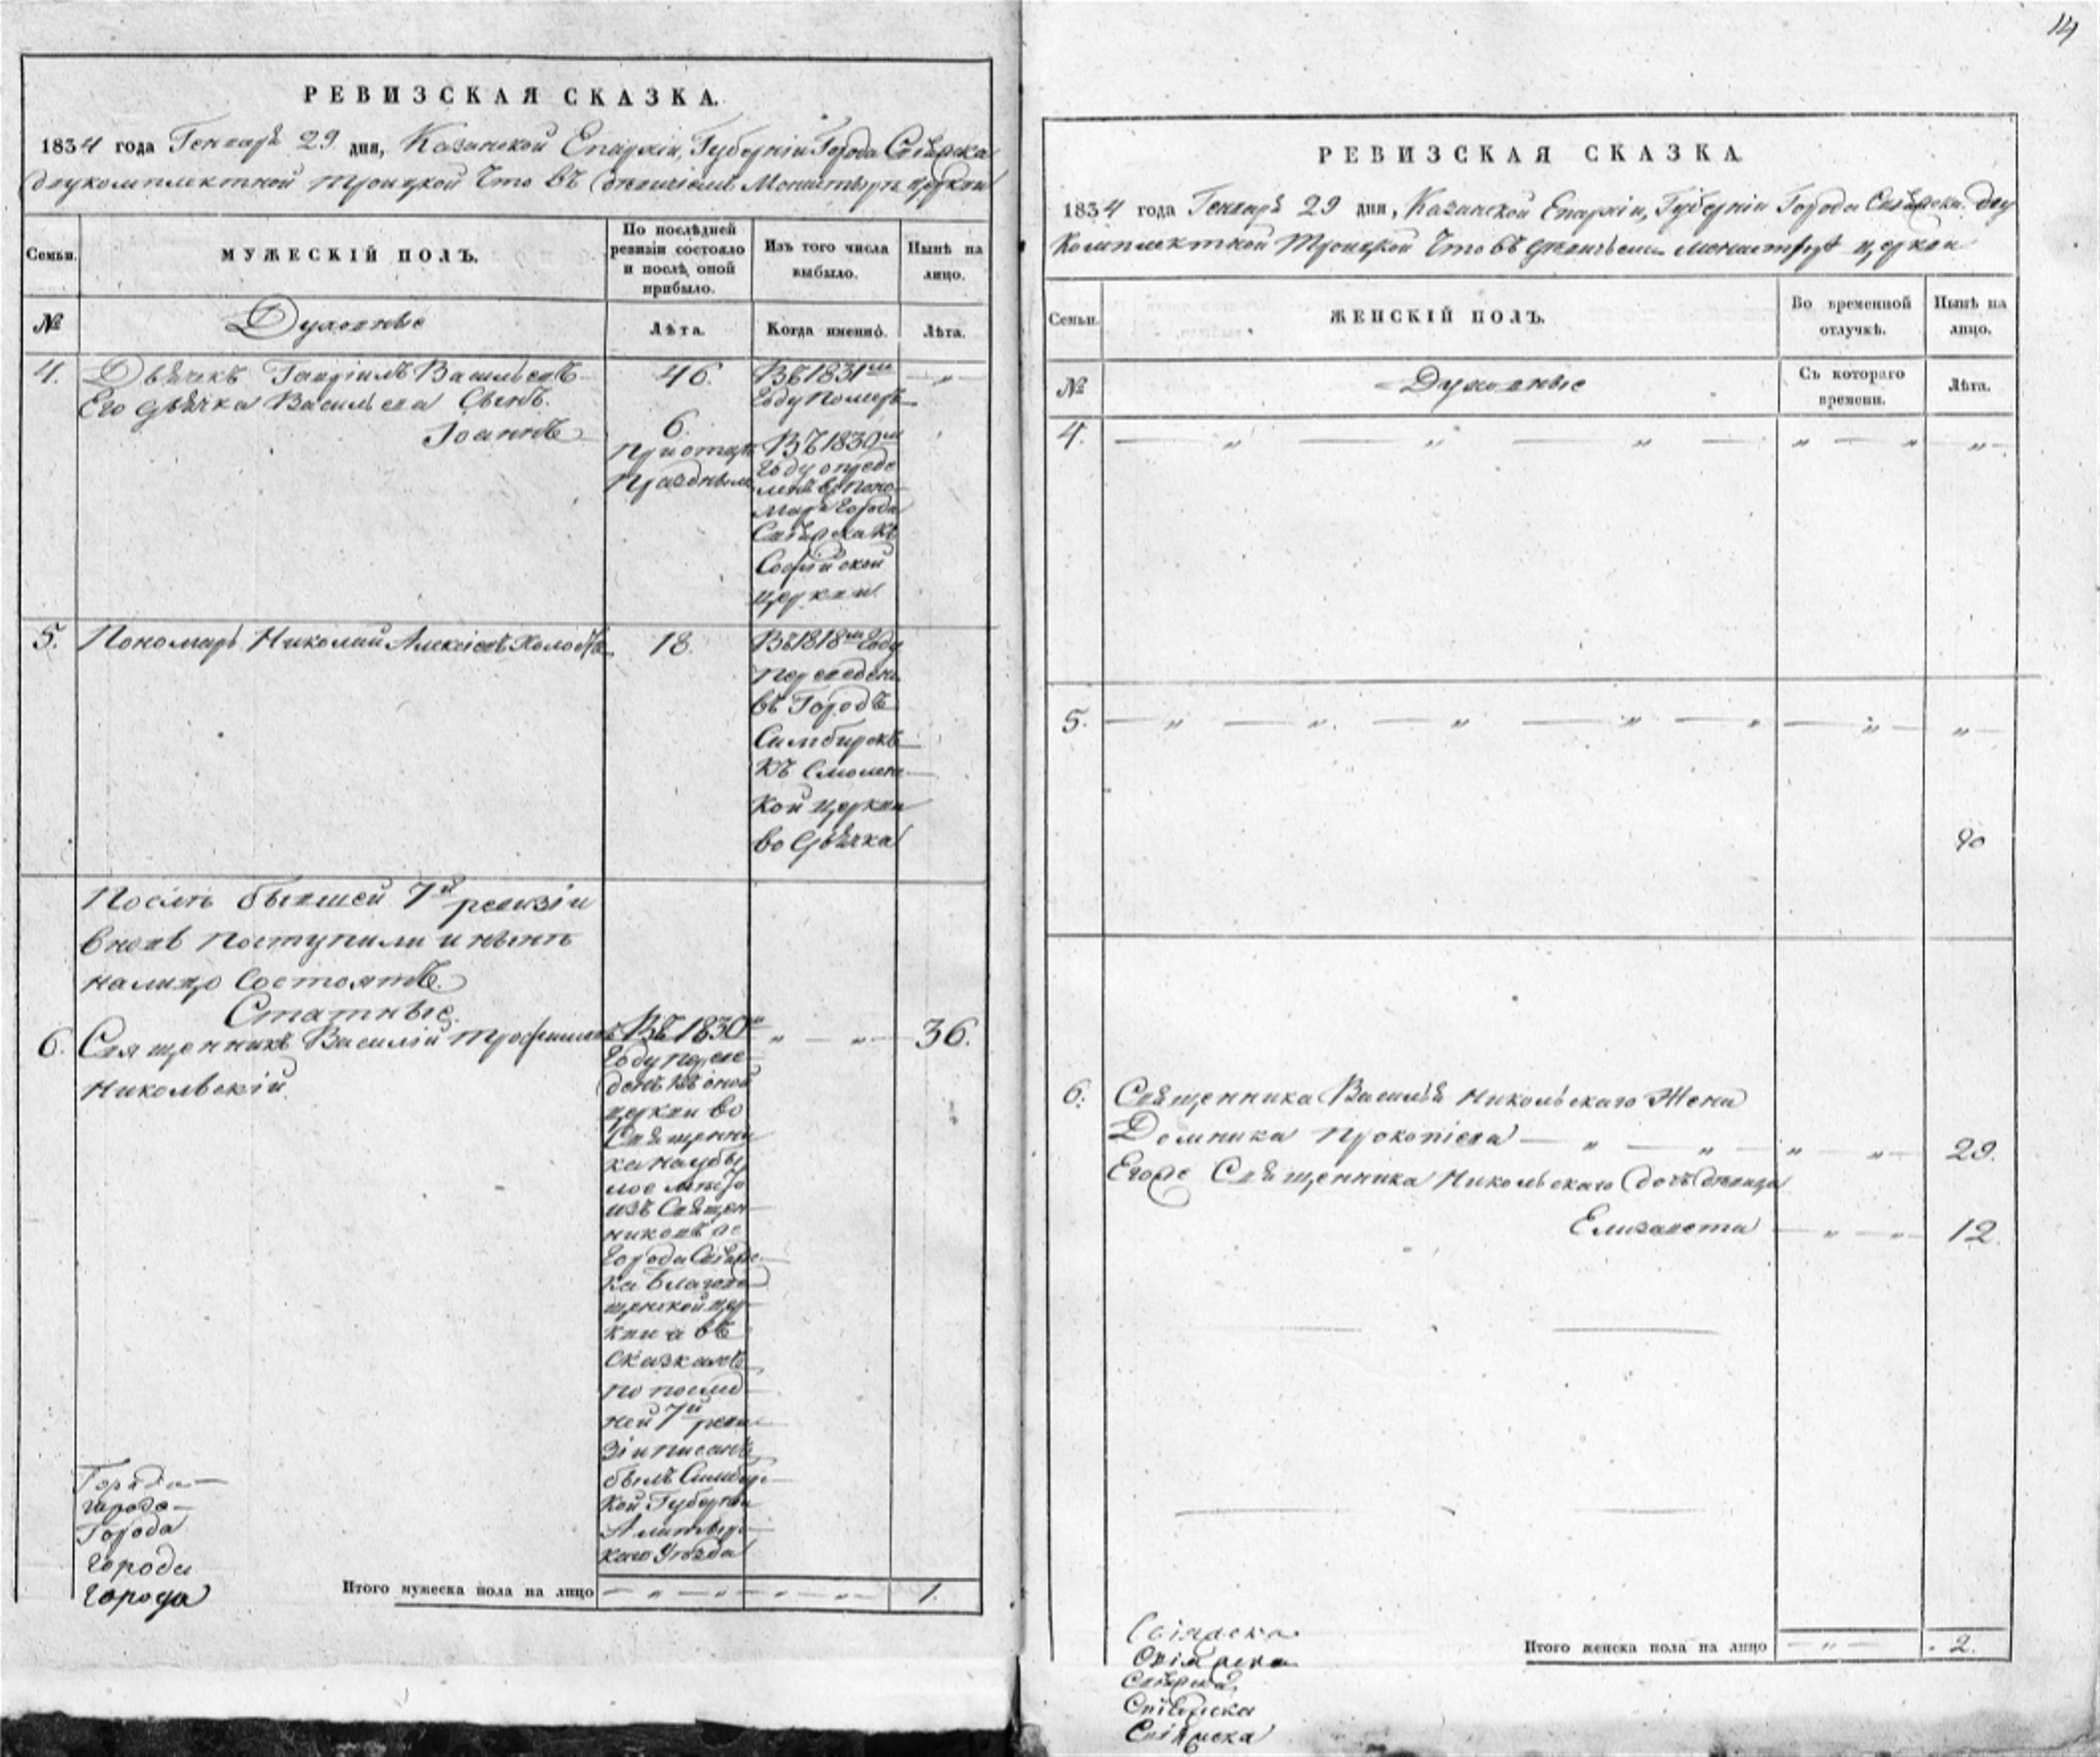 14
РЕВИЗСКАЯ СКАЗКА.
1834 года Генваря 29 дня, Казанской Епархіи, Губерніи Города Свіяжска
двукомплектной Троицкой что въ девичьемъ Монастырѣ церкви
Семьи.
МУЖЕСКІЙ ПОЛЪ.
По послѣдней ревизіи состояло и послѣ оной прибыло.
Изъ того числа выбыло.
Нынѣ на лицо.
№
Духовные
Лѣта.
Когда именно.
Лѣта.
4. Дьячекъ Гавріилъ Васильевъ 46. Въ 1831мъ
Году померъ
Его дьячка Васильева Сынъ.
Іоаннъ 6.
при отцѣ
праздныи
Въ 1830м
Году опреде
ленъ в Поно
маря Города
Свіяжска къ
Софійской
церкви.
5. Пономарь Николай Алексіевъ 18. Въ 1818м Году
переведенъ
въ Городъ
Симбирскъ
къ Смолен
кой церкви
во дьячка
Послѣ бывшей 7й ревизіи
вновь поступили и нынѣ
на лицо состоятъ.
Статные.
6. Священникъ Василій Трофимовъ
Никольскій.
Въ 1830м
Году переве
денъ къ оной
церкви во
Священни
ка на убы
лое мѣсто
изъ Священ
никовъ же
Города Свіяжс
ка Благове
щенской цер
кви а въ
Сказкахъ
по послед
ней 7й реви
зіи писанъ
былъ Симбир
кой Губерніи
каго Уѣзда
36.
Города
города
Города
города
города
Итого мужеска пола на лицо 1.
РЕВИЗСКАЯ СКАЗКА.
1834 года Генваря 29 дня, Казанской Епархіи, Губерніи Города Свіяжска дву
комплектной Троицкой что въ девичьемъ монастырѣ церкви
Семьи.
ЖЕНСКІЙ ПОЛЪ.
Во временной отлучкѣ.
Нынѣ на лицо.
№
Духовные
Съ котораго времени.
Лѣта.
4.
5.
90
6. Священника Василья Никольскаго Жена
Домника Прокопіева 29.
Егоже Священника Никольскаго дочь девица
Елизавета 12.
Свіяжска
Свіяжска
Свіяжска
Свіяжска
Свіяжска
Итого женска пола на лицо 2.